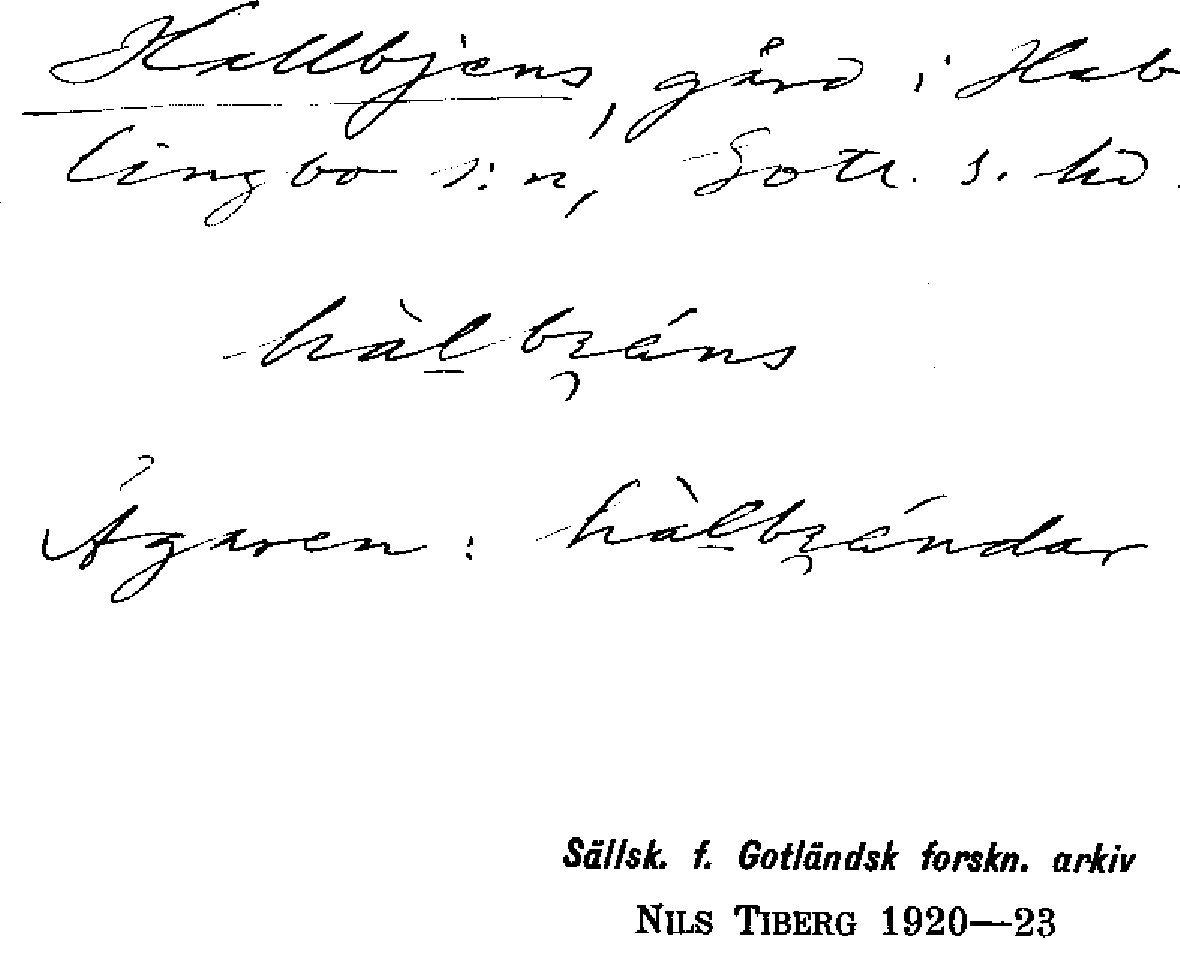 Hallbjens, gård i Hab
lingbo s:n, Gotl. s. hd.
hàlbi̯áns
Ägaren: hàlbi̯ándar
Sällsk. f. Gotländsk forskn. arkiv
NILS TIBERG 1920—23